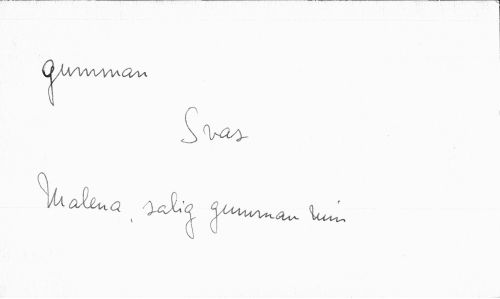 gumman
Svas
Malena, salig gumman min